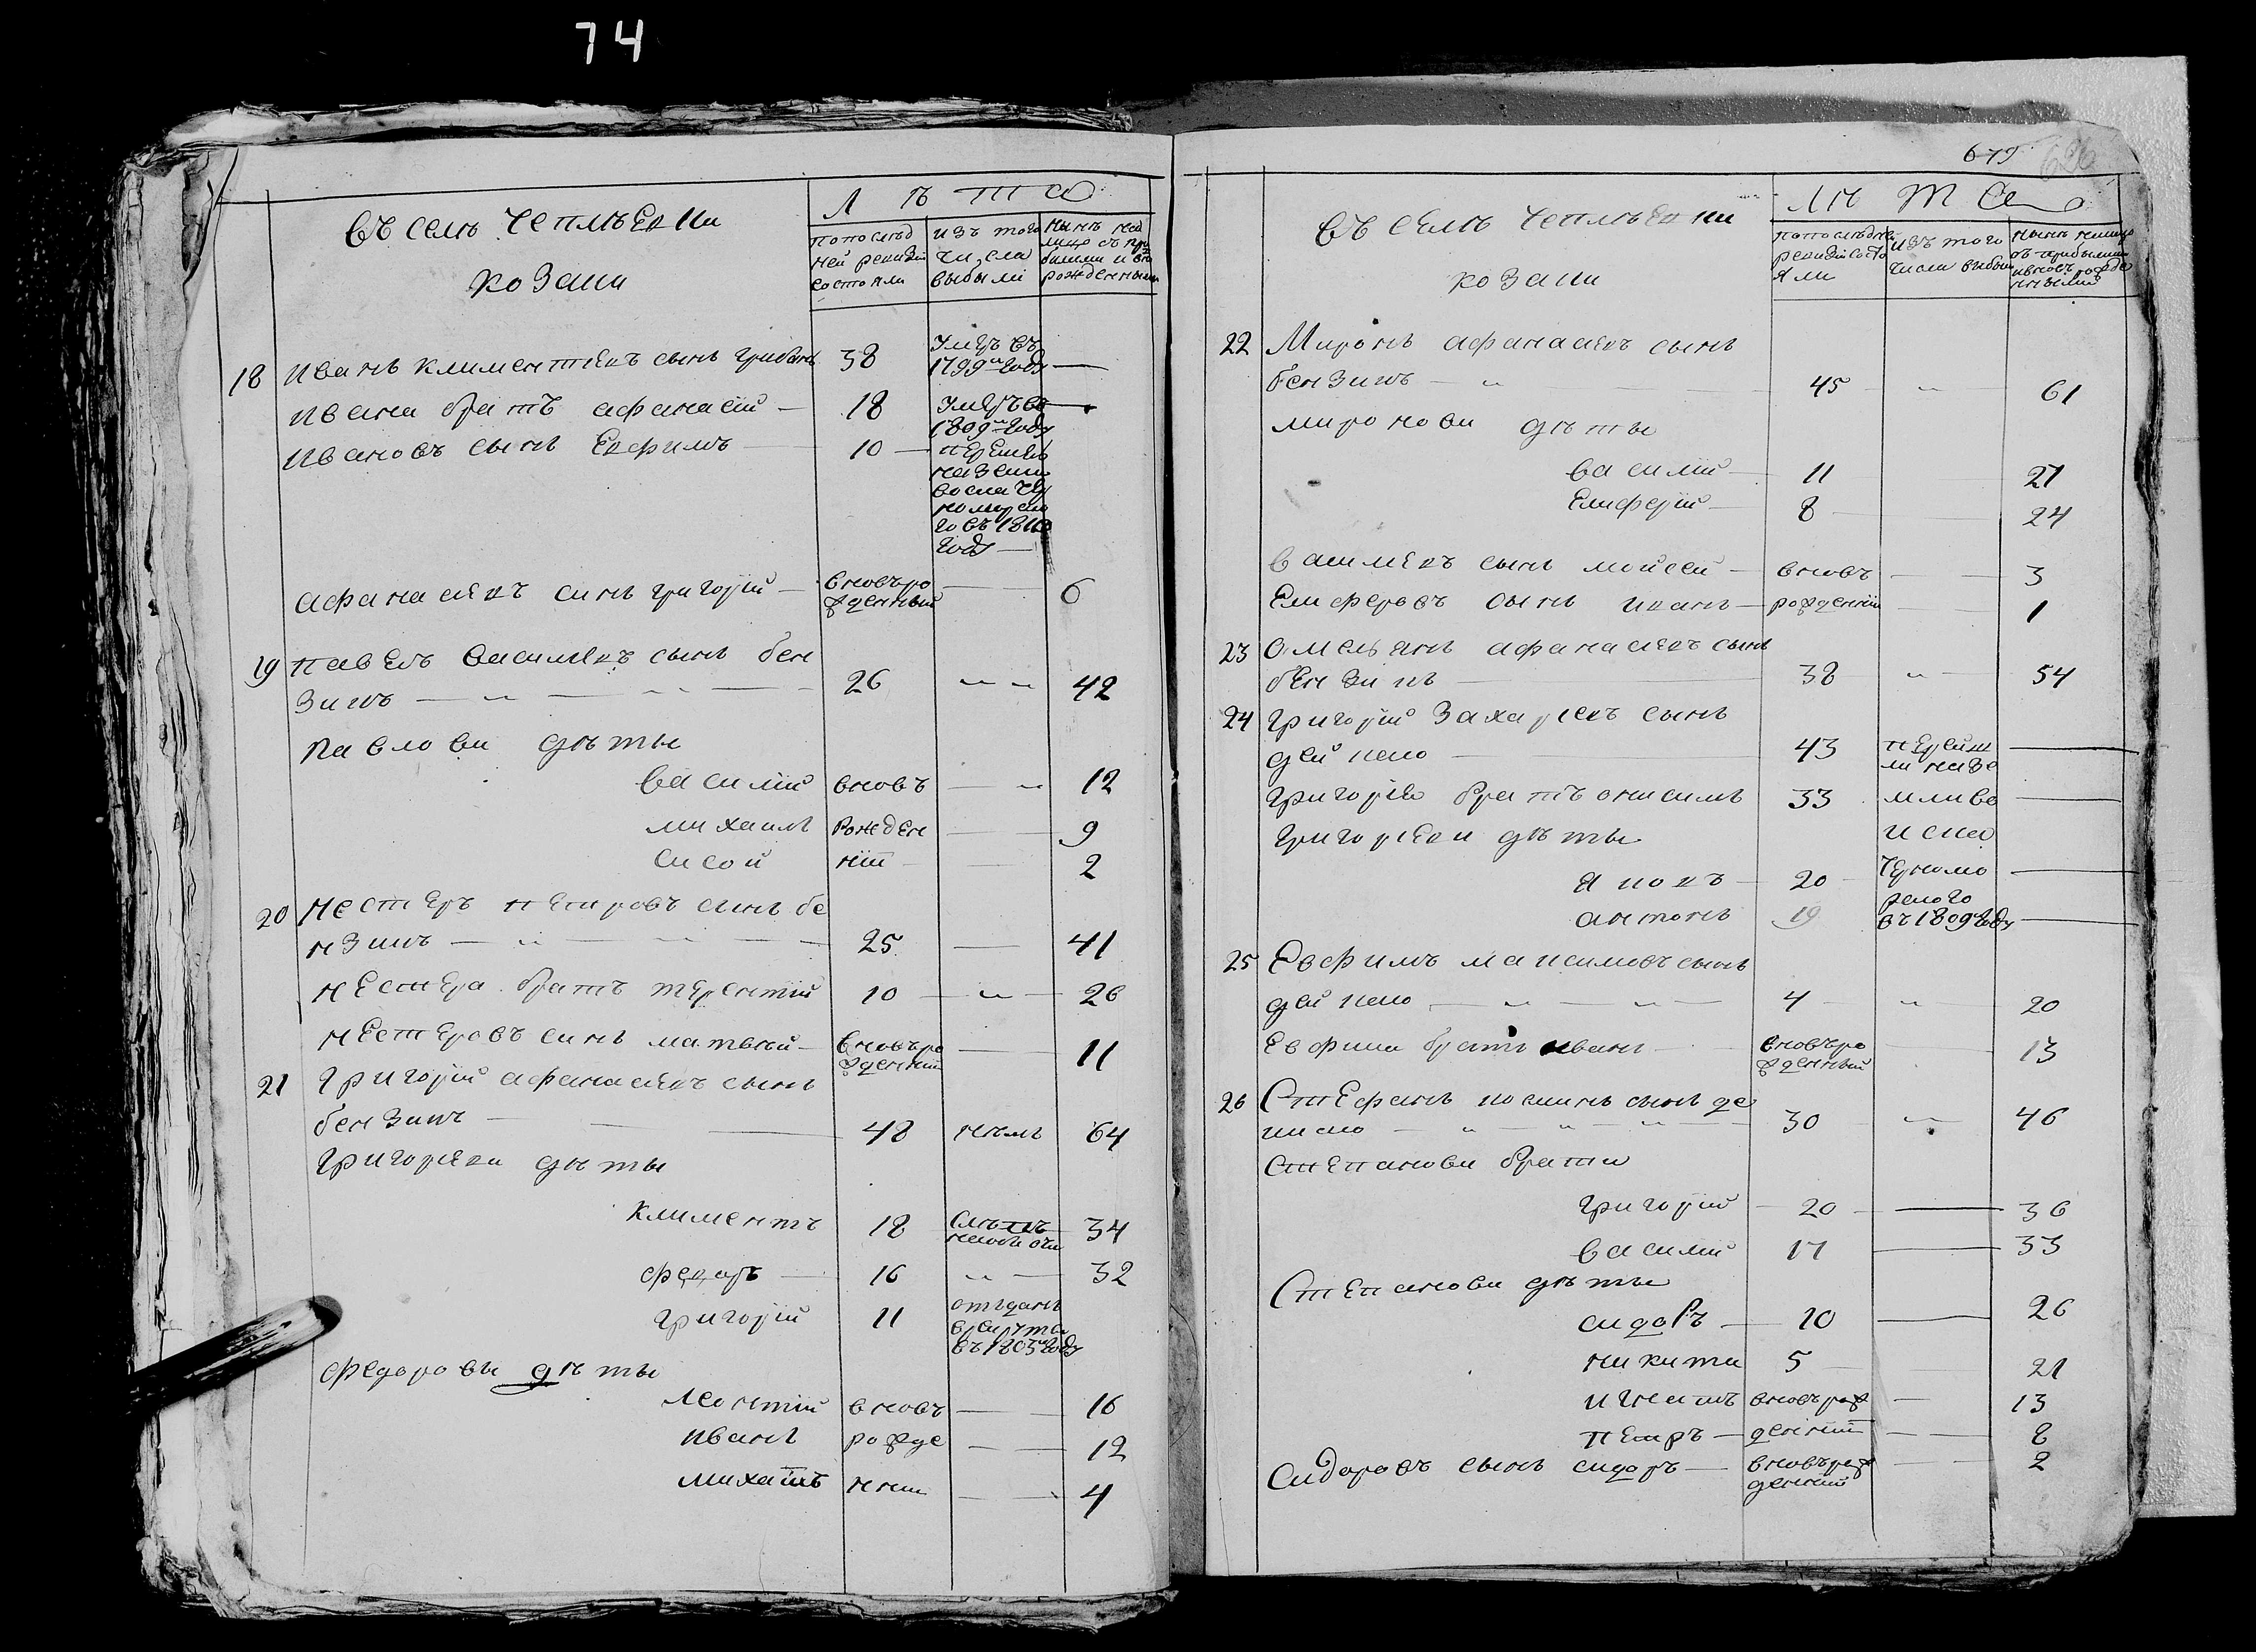 74
Въ селѣ Чеплѣевки
козаки
Лѣта
попослѣд
ней ревизіи
состояли
изъ того
числа
выбыли
нынѣ на
лицо съ при
былими и вно
рожденными
18 Иванъ Климентіевъ сынъ 38 умеръ въ
1799м году —
Ивана братъ Афанасій — 18 умеръ въ —
1809м году
Ивановъ сынъ Евфимъ — 10 — перешелъ
на землю
войска чер
номорско
го въ 1810
году —
Афанасіевъ синъ Григорій — вновъро
жденный — 6
19 Павелъ Василіевъ сынъ бен
зикъ — 26 42
Павлови дѣты
Василій вновъ — 12
Михаилъ рожден — 9
Сисой ніи — 2
20 Нестеръ Петровъ синъ бе
нзикъ — 25 — 41
Нестера братъ Терентій 10 — 26
Нестеровъ синъ Матвѣй — вновъро
жденній — 11
21 Григорій Афанасіевъ сынъ
бензикъ — 48 64
Григоріеви дѣты
Климентъ 18 34
Федоръ — 16 — 32
Григорій 11 отъданъ
в рекрута
въ 1805м году
Федоровы дѣты
Леонтій вновъ — 16
Иванъ рожде — 12
Михаилъ нніи — 4
679
696
Въ селѣ Чеплѣевки
козаки
Лѣта
попослѣдней
ревизіи состо
яли
изъ того
числа выбыли
нынѣ налицо
съ прибылими
и вновъ рожде
нными
22 Миронъ Афанасіевъ сынъ
бензикъ — 45 61
Миронови дѣты
Василій — 11 27
Елиферій — 8 — 24
Василіевъ сынъ Мойсей — вновъ — 3
Елиферовъ сынъ Иванъ — рожденніи — 1
23 Омельянъ Афанасіевъ сынъ
бензикъ — 38 54
24 Григорій Захаріевъ сынъ
дейнеко — 43 перейш
ли на зе —
Григорія братъ Онисимъ 33 мли во —
Григоріеви дѣты иска
Яковъ — 20 — черномо —
Антонъ 19 рского
въ 1809 году —
25 Евфимъ Максимовъ сынъ
дейнеко — 4 — 20
Евфима братъ Иванъ — вновъро
жденный — 13
26 Стефанъ сынъ де
30 46
Степанови брати
Григорій — 20 — 36
Василій 17 — 33
Степанови дѣты
Сидоръ — 10 — 26
Никита 5 — 21
Игнатъ вновърож — 13
Петръ — деніи — 8
Сидоровъ сынъ Сидоръ — вновърож — 2
денній